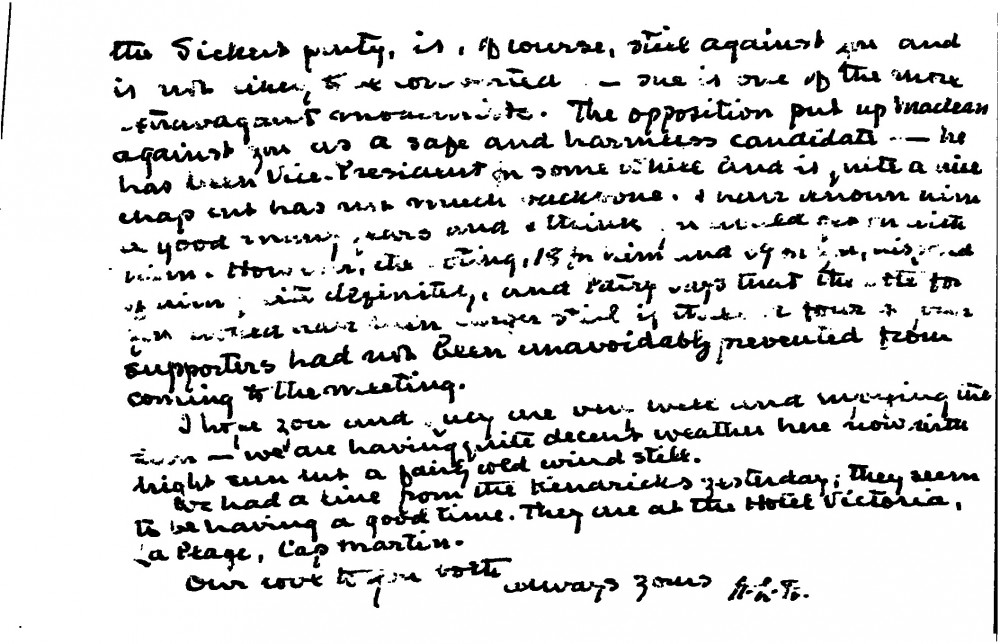 the Sickert party, is, of course, still against you and
is not likely to be converted — she is one of the more
extravagant anoamists. The opposition put up Maclean
against you as a safe and harmless candidate — he
has been Vice-President for some while and is quite a nice
chap but has not much backbone. I have known him
a good many years and I think in with
him. However, the voting, 18 for him and
of him, quite definitely, and says that the vote for
you would have been larger still if three or four of your
supporters had not been unavoidably prevented from
coming to the meeting.
I hope you and Lucy are very well and enjoying the
— we are having quite decent weather here now with
bright sun but a fairly cold wind still.
We had a line from the Kendricks yesterday; they seem
to be having a good time. They are at the Hotel Victoria,
La Plage, Cap Martin.
Our love to you both always yours